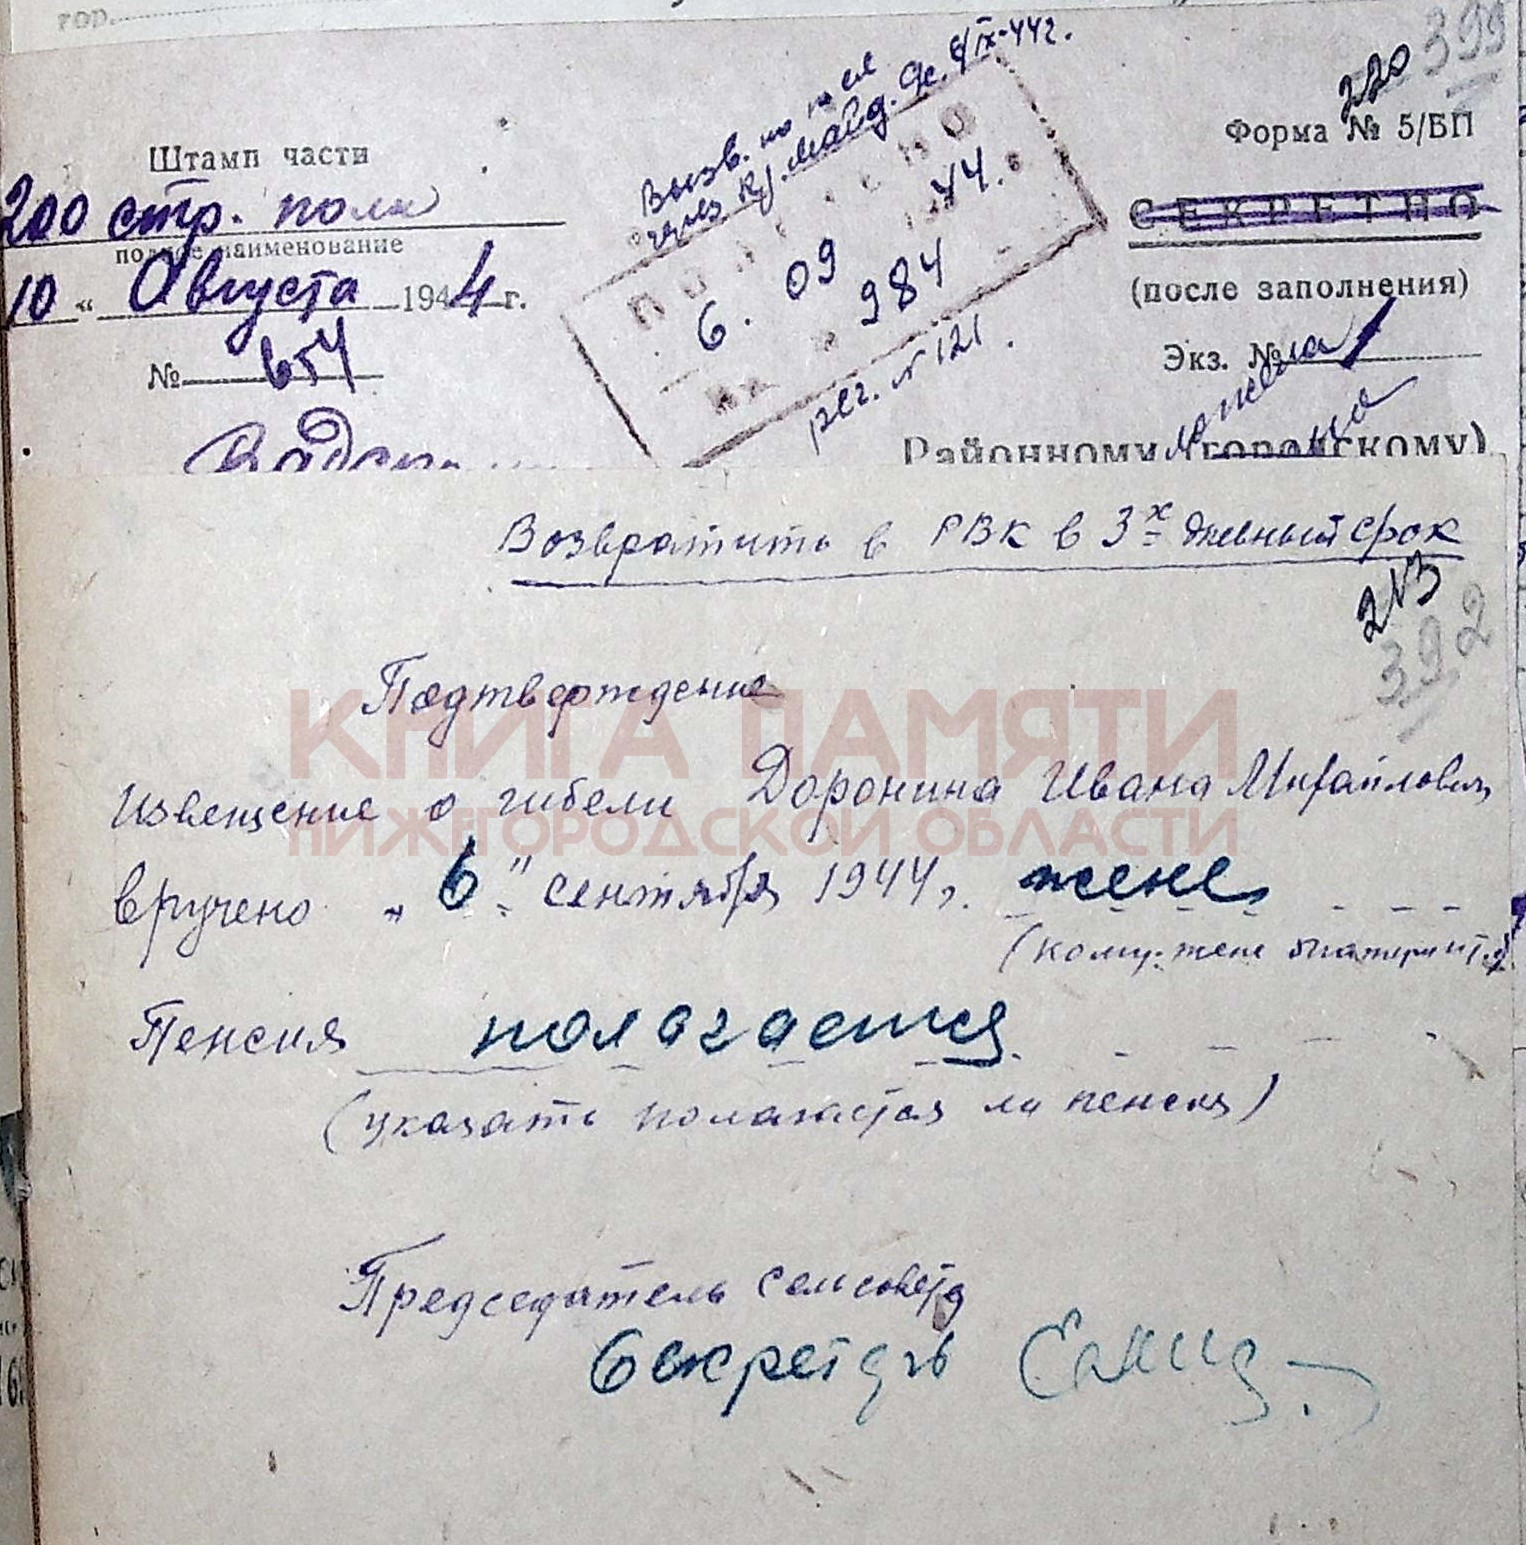 гор.
399
220
Форма № 5/БП
Штамп части
200 стр. полк
полное наименование
10 " Августа 1944 г.
№ 654
Вызв.
6. 09 44.
984
№ 121.
СЕКРЕТНО
(после заполнения)
Экз. № 1
Районному (городскому)
Возвратить в РВК в 3х дневный срок
213
392
Подтверждение
КНИГА ПАМЯТИ
НИЖЕГОРОДСКОЙ ОБЛАСТИ
Извещение о гибели Доронина Ивана Михайлович
вручено "6" сентября 1944 г. жене
(кому: жене
Пенсия полагается
(указать полагается ли пенсия)
Председатель сельсовета
Секретарь